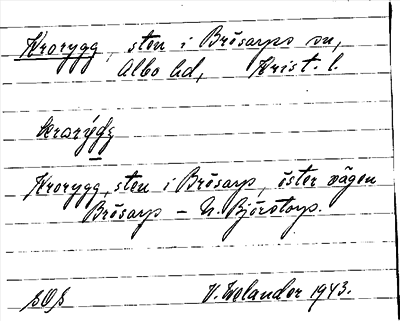 Krorygg, sten i Brösarps sn,
Albo hd, Krist. l.
Krorygg, sten i Brösarp, öster vägen
Brösarp – N. Björstorp.
V. Zelander 1943.